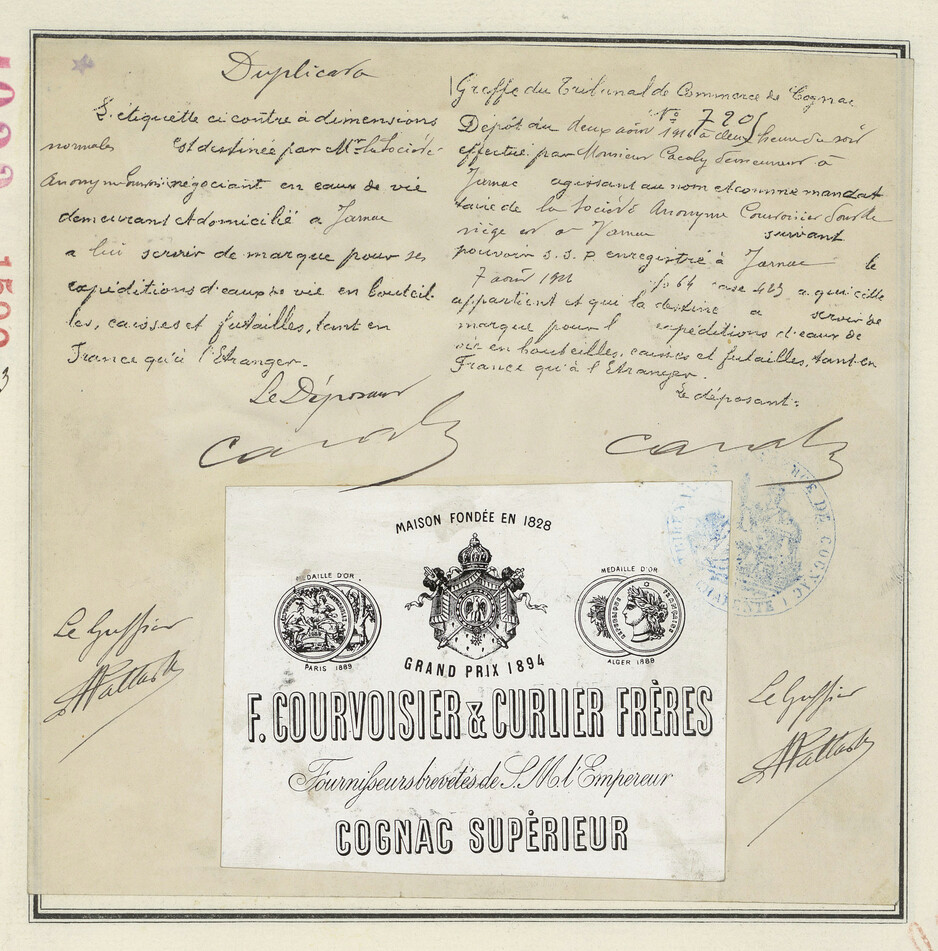 Duplicata
L'étiquette ci contre à dimensions
normales est destinée par Mr la Société
Anonyme négociant en eaux de vie
demeurant et domicilié à Jarnac
a lui servir de marque pour ses
expéditions d'eaux de vie en bouteil
les, caisses et futailles, tant en
France qu'à l'Etranger.
Le Déposant
Greffe du Tribunal de Commerce de Cognac
No 7205
Dépôt du deux août à deux heures du soir
effectué par Monsieur Cacoly demeurant à
Jarnac agissant au nom et comme mandat
taire de la Société Anonyme Courvoisier dont le
siège est à Jarnac suivant
pouvoir S.S.P. enregistré à Jarnac le
7 août fo 64 case 423 a qui cette
appartient et qui la destine a servir de
marque pour l expéditions d'eaux de
vie en bouteilles, caisses et futailles, tant en
France qu'à l'Etranger.
Le déposant:
MAISON FONDÉE EN 1828
MEDAILLE D'OR
PARIS 1889
GRAND PRIX 1894
MEDAILLE D'OR
ALGER 1888
F. COURVOISIER & CURLIER FRÈRES
Fournisseurs brevetés de S.M. l'Empereur
COGNAC SUPÉRIEUR
Le Greffier
Le Greffier
DE COGNAC